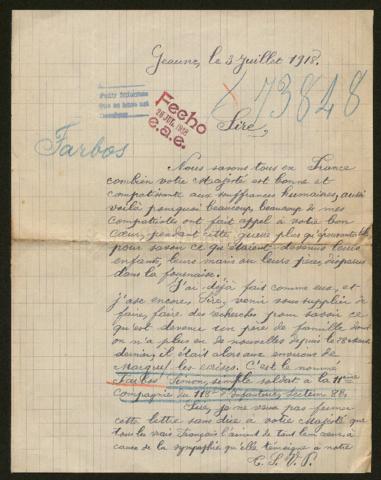 Geaune, le 3 juillet 1918.
73848
Fecho
26 JUL. 1918
Sire,
Tarbos
Nous savons tous en France
combien votre Majesté est bonne et
compatissante aux souffrances humaines, aussi
voilà pourquoi beaucoup, beaucoup de mes
compatriotes ont fait appel à votre bon
cœur, pendant cette guerre plus qu'épouvantable
pour savoir ce qu'étaient devenus leurs
enfants, leurs maris ou leurs pères, disparus
dans la fournaise.
J'ai déjà fait comme eux, et
j'ose encore, Sire, venir vous supplier de
faire, faire des recherches pour savoir ce
qu'est devenu un père de famille dont
on n'a plus eu de nouvelles depuis le 28
dernier, il était alors aux environs de
C'est le nommé
Tarbos Simon, simple soldat à la 11ième
Compagnie du 118e d'Infanterie, Secteur 88.
Sire, je ne veux pas fermer
cette lettre sans dire à votre Majesté que
tous les vrais Français l'aiment de tout leur cœur, à
cause de la sympathie qu'elle témoigne à notre
T. S. V. P.